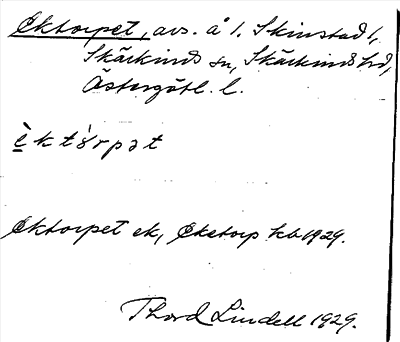 Ektorpet, avs. å 1. Skinstad 1,
Skärkinds sn, Skärkinds hd,
Östergötl. l.
èktó̀rpət
Ektorpet ek, Eketorp kb 1929.
Thord Lindell 1929.